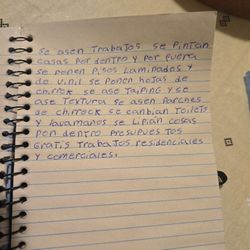 se asen Trabajos se Pintan
casas Por dentro y Por fuera
se ponen Pisos Laminados y
de vinil se Ponen hojas de
chirrok se ase TaiPing y se
ase Textura se asen Parches
de chirrock se canbian Toilets
y lavamanos se Lipian cosas
Por dentro PresuPuestos
Gratis Trabajos residenciales
y comerciales.